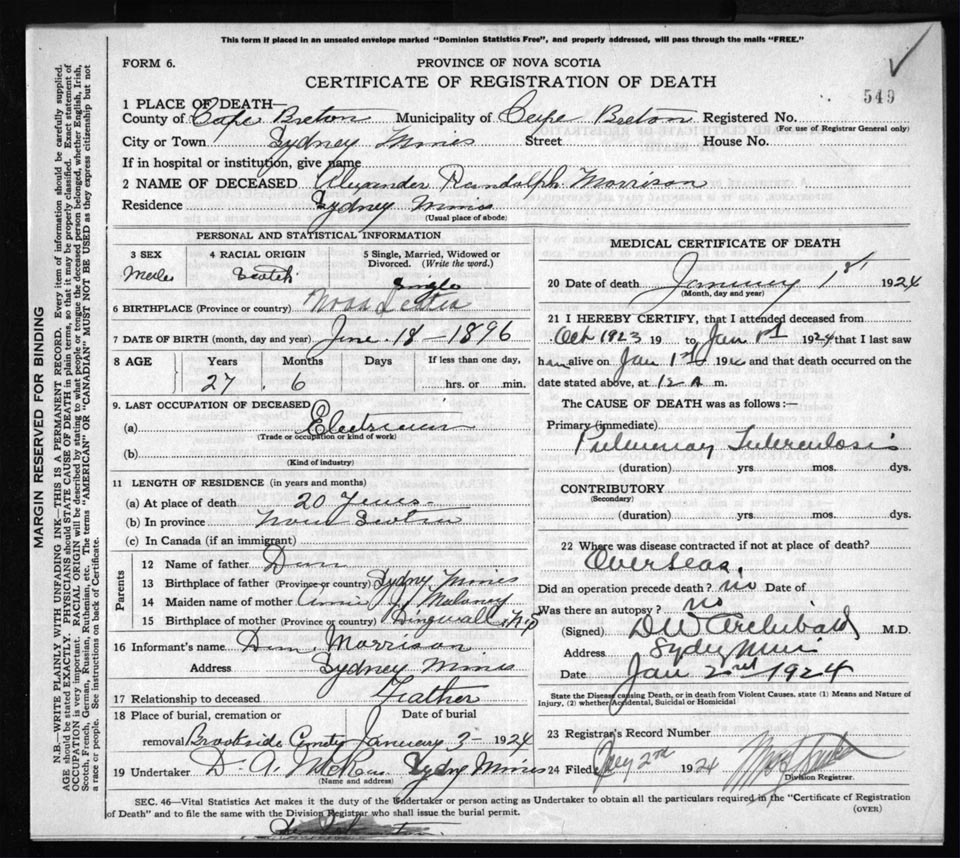 This form if placed in an unsealed envelope marked "Dominion Statistics Free", and properly addressed, will pass through the mails "FREE."
FORM 6.
PROVINCE OF NOVA SCOTIA
CERTIFICATE OF REGISTRATION OF DEATH
549
1 PLACE OF DEATH—
County of Cape Breton Municipality of Cape Breton Registered No.
(For use of Registrar General only)
City or Town Sydney Mines Street House No.
If in hospital or institution, give name
2 NAME OF DECEASED Alexander Randolph Morrison
Residence Sydney Mines
(Usual place of abode)
PERSONAL AND STATISTICAL INFORMATION
3 SEX 4 RACIAL ORIGIN 5 Single, Married, Widowed or Divorced. (Write the word.)
Male Scotch Single
6 BIRTHPLACE (Province or country) Nova Scotia
7 DATE OF BIRTH (month, day and year) June 18 - 1896
8 AGE Years Months Days If less than one day,
27 6 hrs. or min.
9. LAST OCCUPATION OF DECEASED
(a) Electrician
(Trade or occupation or kind of work)
(b)
(Kind of industry)
11 LENGTH OF RESIDENCE (in years and months)
(a) At place of death 20 Years
(b) In province Nova Scotia
(c) In Canada (if an immigrant)
Parents
12 Name of father Dan
13 Birthplace of father (Province or country) Sydney Mines
14 Maiden name of mother Annie J. Maloney
15 Birthplace of mother (Province or country) Dingwall
16 Informant's name Dan Morrison
Address Sydney Mines
17 Relationship to deceased Father
18 Place of burial, cremation or removal Date of burial
Brookside Cmty January 3 - 1924
19 Undertaker D. A. McRae Sydney Mines
(Name and address)
MEDICAL CERTIFICATE OF DEATH
20 Date of death January 1st 1924
(Month, day and year)
21 I HEREBY CERTIFY, that I attended deceased from
Oct 1923 19 to Jan 1st 1924 that I last saw
him alive on Jan 1st 192 and that death occurred on the
date stated above, at 12 A m.
The CAUSE OF DEATH was as follows:—
Primary (immediate)
Pulmonary Tuberculosis
(duration) yrs. mos. dys.
CONTRIBUTORY
(Secondary)
(duration) yrs. mos. dys.
22 Where was disease contracted if not at place of death?
Overseas.
Did an operation precede death? no Date of
Was there an autopsy? no
(Signed) DW Archibald M.D.
Address Sydney Mines
Date Jan 2nd 1924
State the Disease causing Death, or in death from Violent Causes, state (1) Means and Nature of Injury, (2) whether Accidental, Suicidal or Homicidal
23 Registrar's Record Number
24 Filed 2nd 1924
Division Registrar.
SEC. 46—Vital Statistics Act makes it the duty of the Undertaker or person acting as Undertaker to obtain all the particulars required in the "Certificate of Registration
of Death" and to file the same with the Division Registrar who shall issue the burial permit. (OVER)
MARGIN RESERVED FOR BINDING
N.B.—WRITE PLAINLY WITH UNFADING INK—THIS IS A PERMANENT RECORD. Every item of information should be carefully supplied.
AGE should be stated EXACTLY. PHYSICIANS should STATE CAUSE OF DEATH in plain terms, so that it may be properly classified. Exact statement of
OCCUPATION is very important. RACIAL ORIGIN will be described by stating to what people or tongue the deceased person belonged, whether English, Irish,
Scotch, French, German, Russian, Ruthenian, etc. The terms "AMERICAN" OR "CANADIAN" MUST NOT BE USED as they express citizenship but not
a race or people. See instructions on back of Certificate.